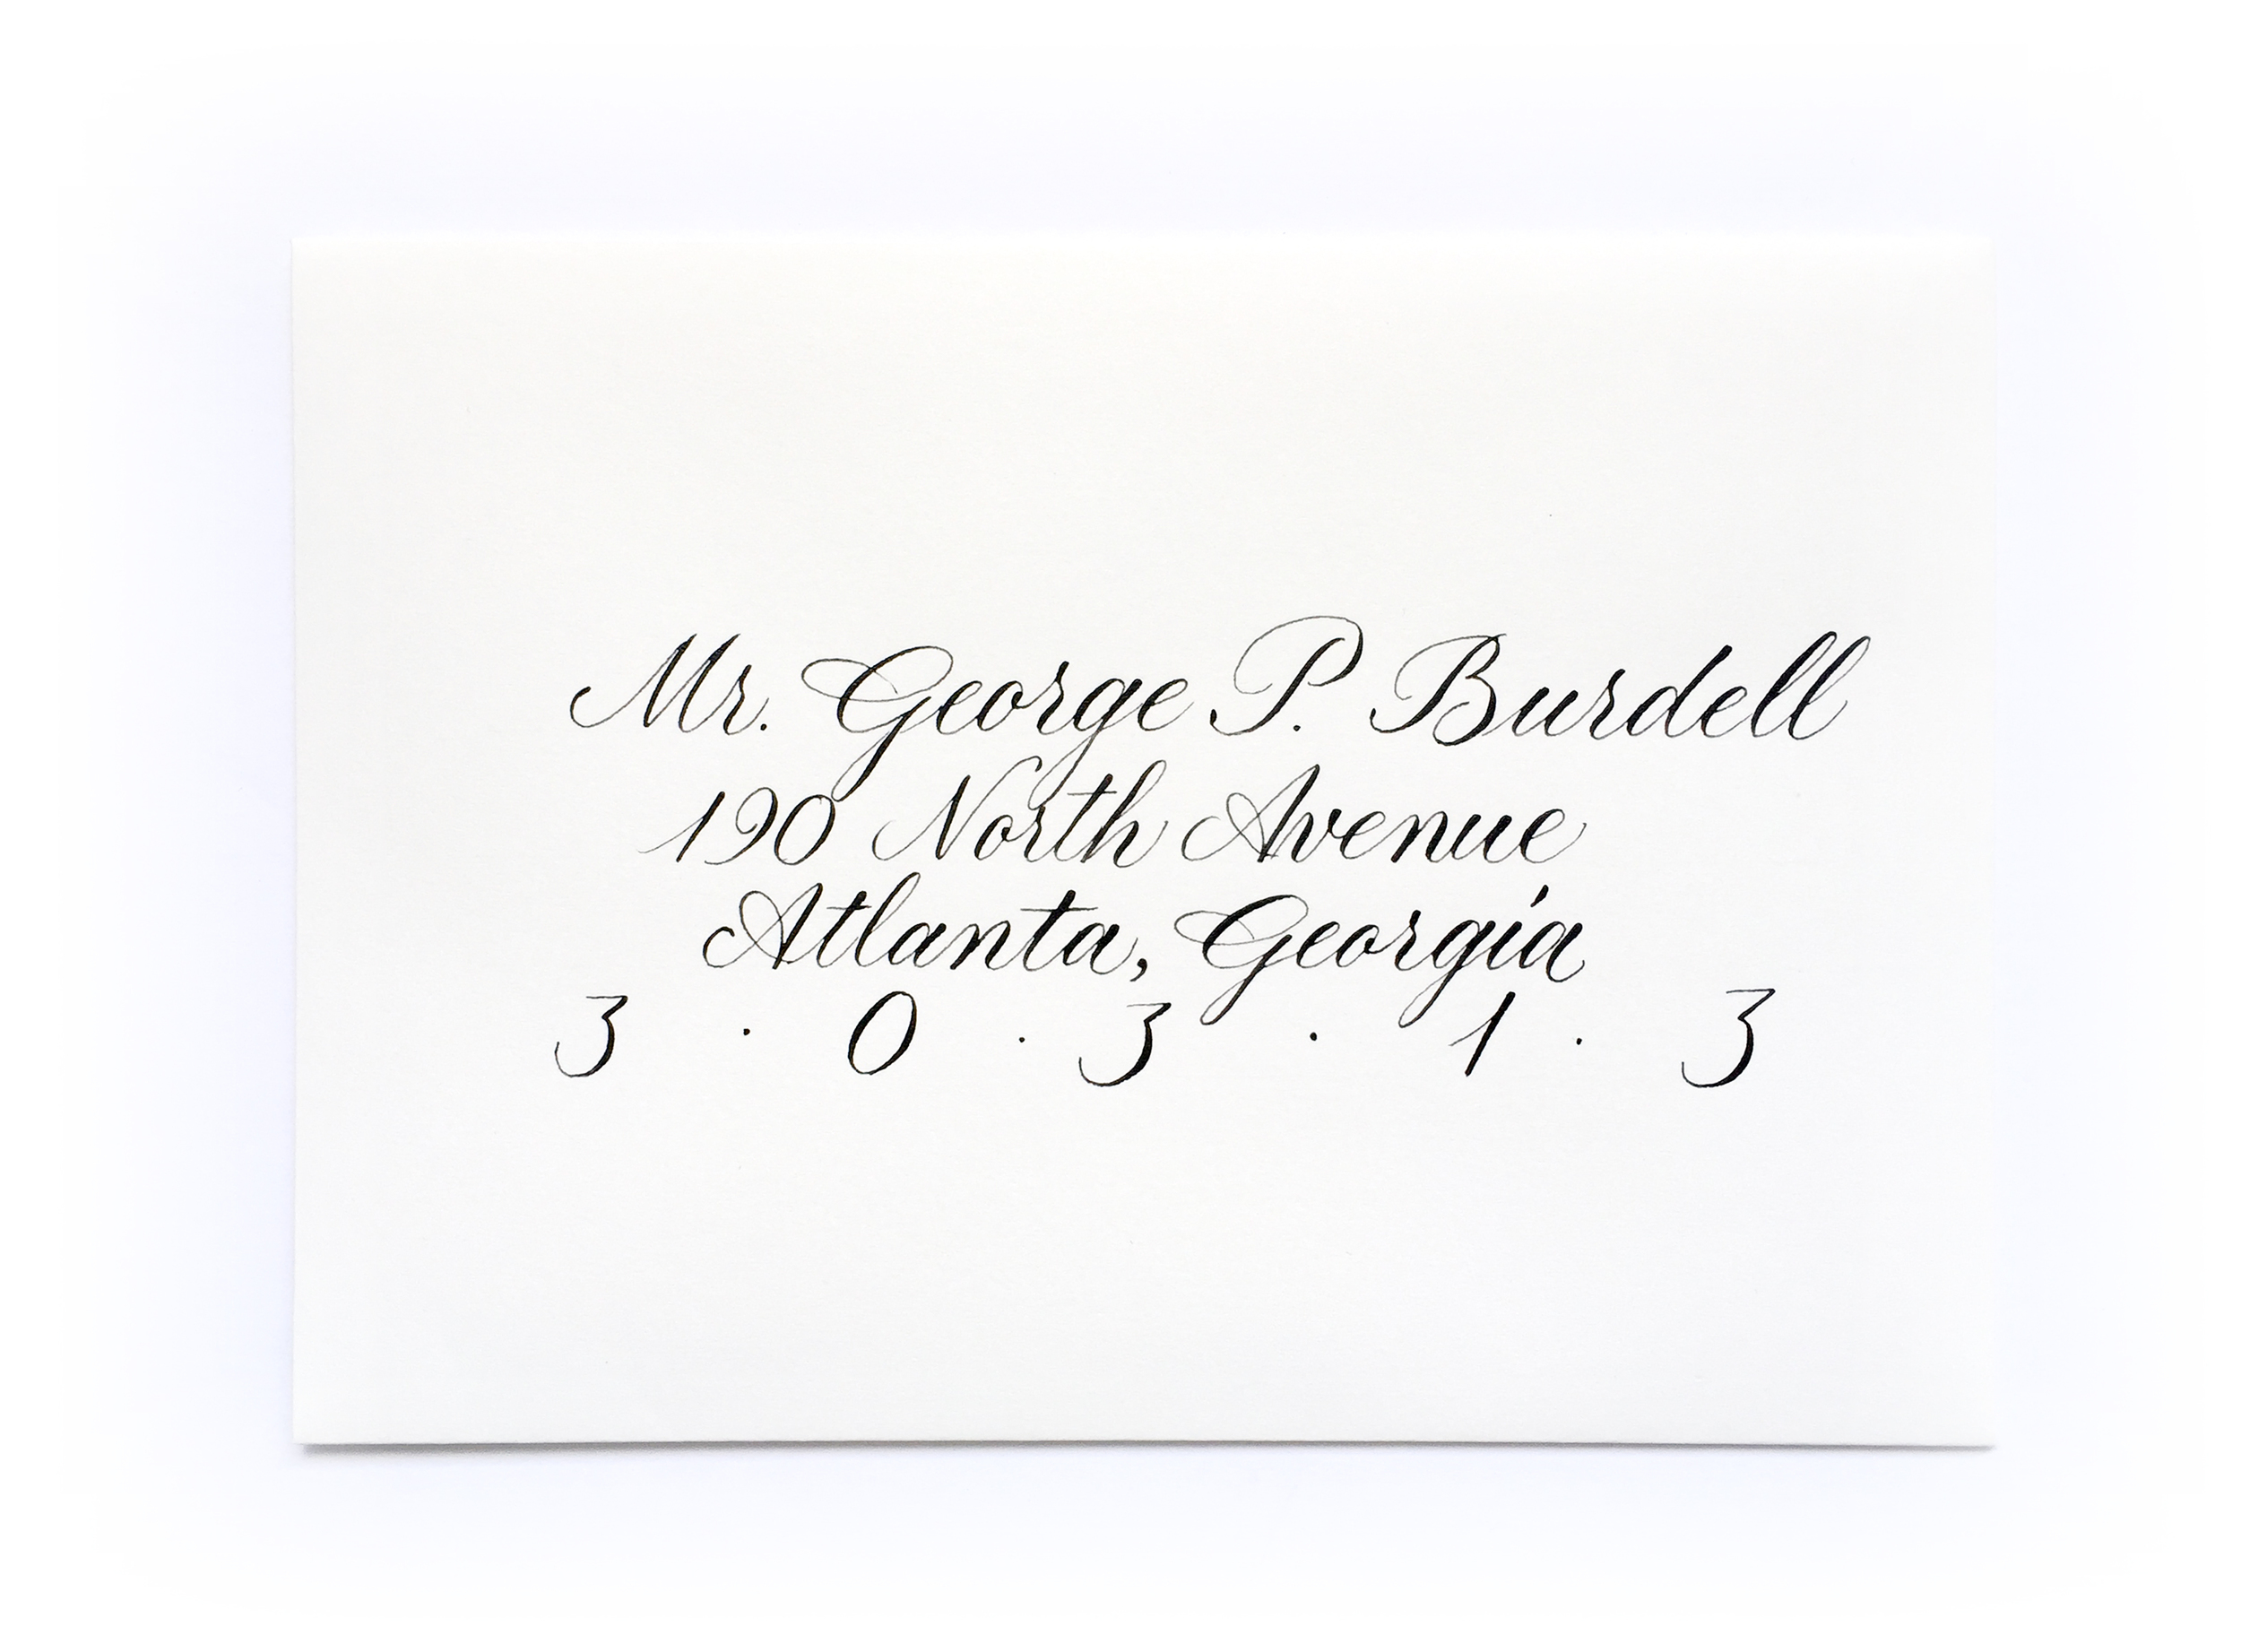 Mr. George P. Burdell
190 North Avenue
Atlanta, Georgia
3 · 0 · 3 · 1 · 3